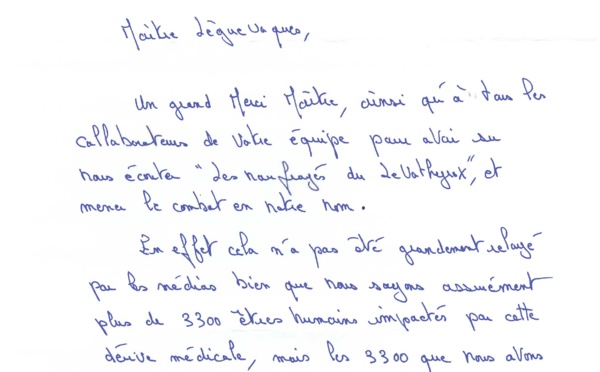 Maître Lèguevaques,
Un grand Merci Maître, ainsi qu'à tous les
collaborateurs de votre équipe pour avoir su
nous écouter "Les naufragés du LeVothyrox", et
mener le combat en notre nom.
En effet cela n'a pas été grandement relayé
par les médias bien que nous soyons assurément
plus de 3300 êtres humains impactés par cette
dérive médicale, mais les 3300 que nous avons